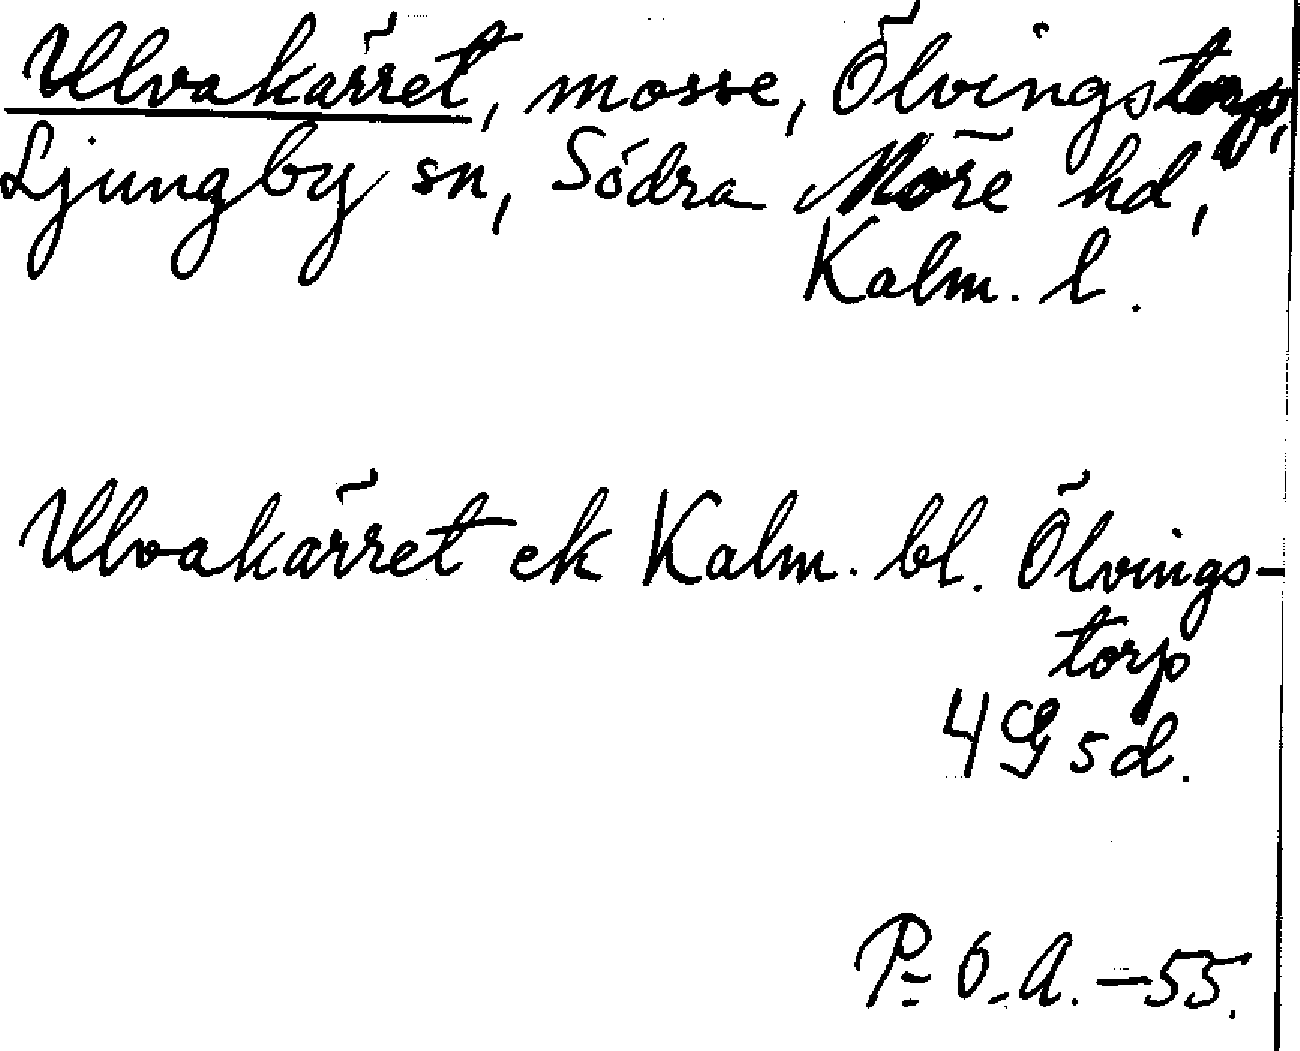 Ulvakärret, mosse, Ölvingstorp,
Ljungby sn, Södra Möre hd,
Kalm. l.
Ulvakärret ek Kalm. bl. Ölvings-
torp
4G5d.
P-O-A. -55.